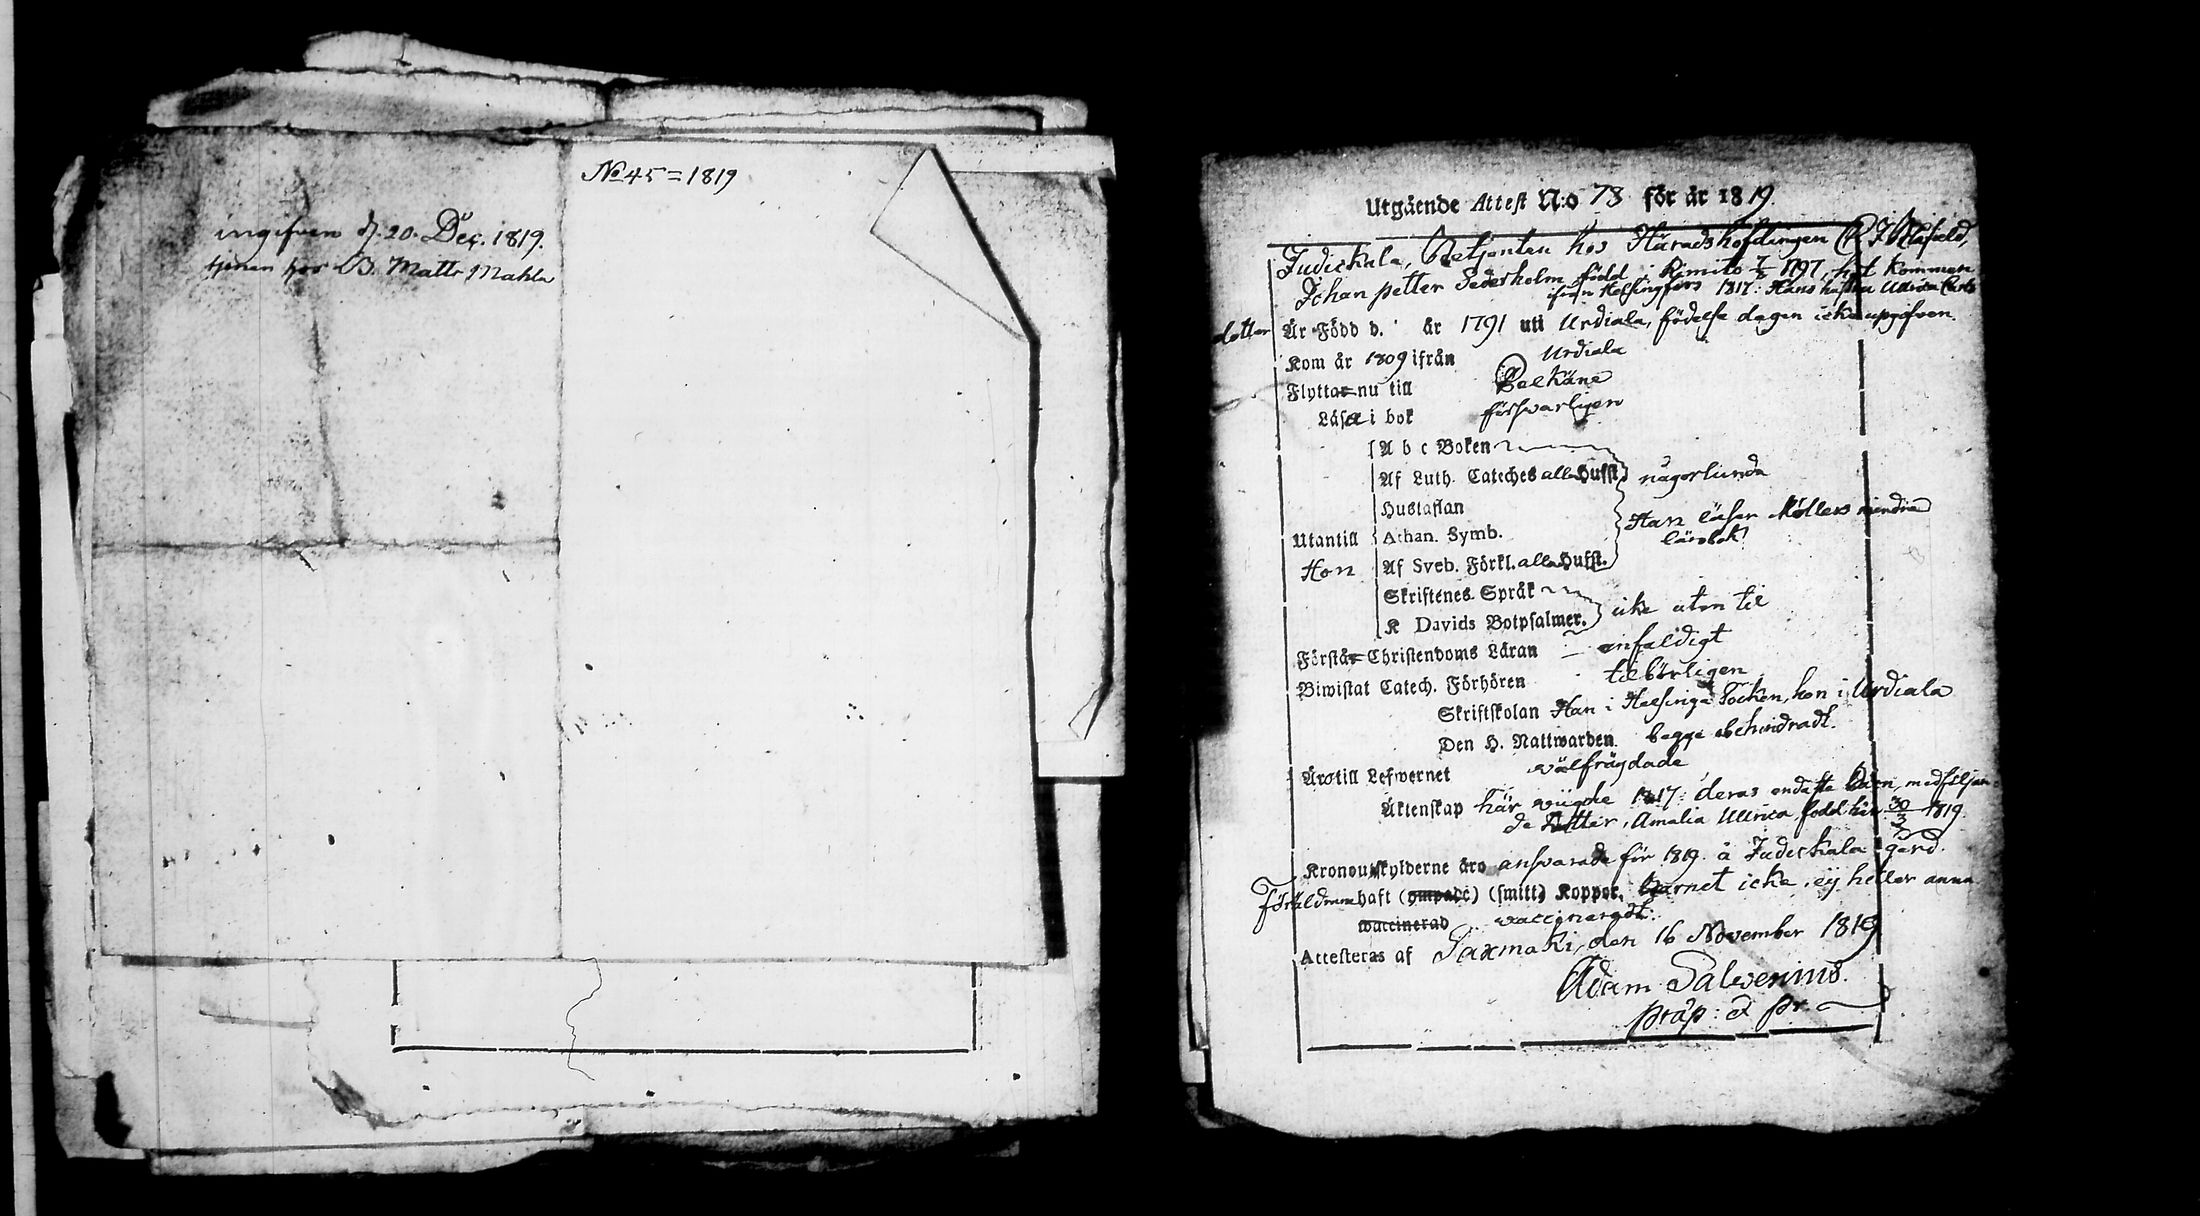 No 45 = 1819
ingifven d. 20. Dec. 1819.
tjenar hos B. Matts Mahla
Utgående Attest N:o 73 för år 1819.
Judickala, Betjenten hos Häradshöfdingen
Johan petter Sederholm född i Rimito 7/8 1797, hit kommen
ifrån Helsingfors 1817: Hans hustru Ullrica Carls
dotter Är Född d. år 1791 uti Urdiala, födelse dagen icke upgifven.
Kom år 1809 ifrån Urdiala
Flytta nu till Pelkäne
Läsa i bok försvarligen
A b c Boken
Af Luth. Cateches alla Hufst. någorlunda
Hustaflan
Han läser Möllers mindre
Utantill Athan. Symb. lärobok
Hon Af Sveb. Förkl. alla Hufst.
Skriftenes Språk
K Davids Botpsalmer. icke utan til
Förstå Christendoms Läran enfaldigt
Biwistat Catech. Förhören tilbörligen
Skriftskolan Han i Helsinge Socken, hon i Urdiala
Den H. Nattwarden begge obehindradt.
Äro till Lefwernet wälfrägdade
Äktenskap här wigde 1817: deras endaste barn, medföljan-
de dotter, Amalia Ullrica född här 30/3 1819.
Kronoutskylderne äro answarade för 1819. å Judickala gård.
Föräldrarne haft (ympade) (smitt) Koppor, barnet icke, ej heller ännu
waccinerad waccineradt.
Attesteras af Saxmaki, den 16 November 1819
Adam Salwenius.
præp: & pr.